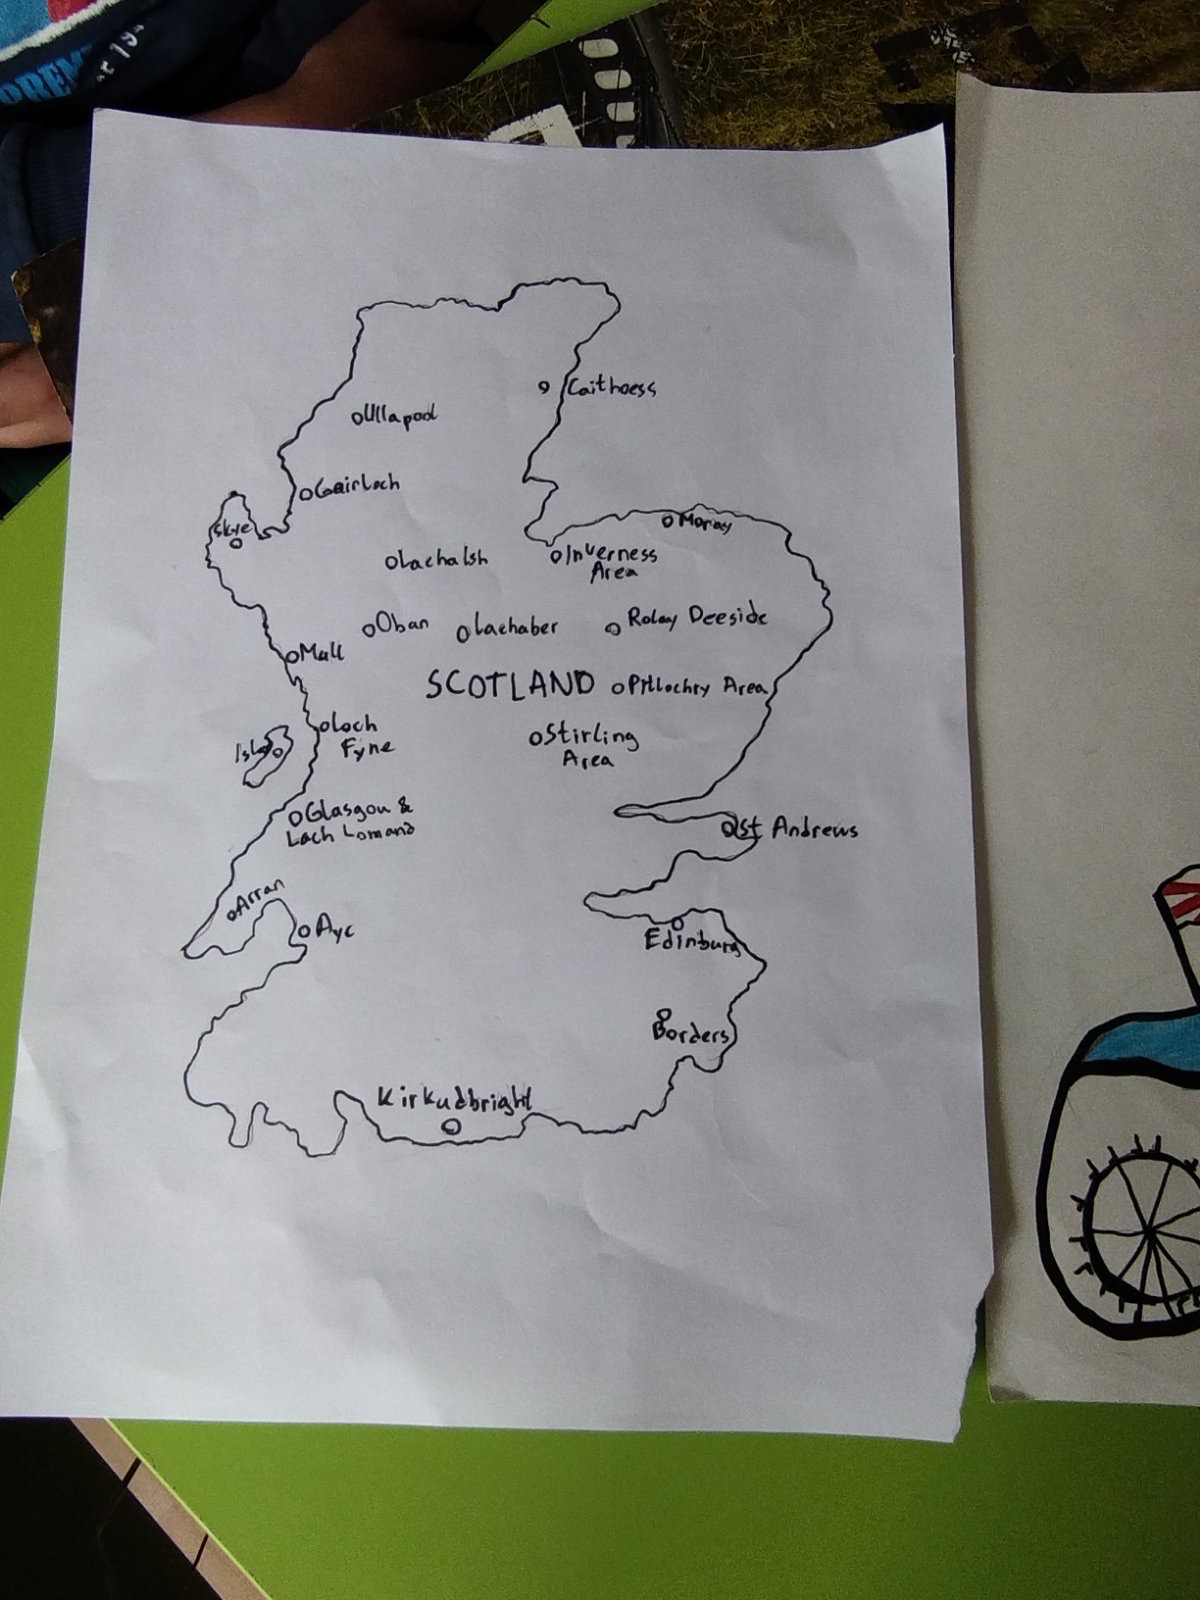 Caithoess
Ullapool
Gairloch
Skye
Moray
Lachalsh
Inverness
Area
Oban
Lachaber
Rolay Deeside
Mull
SCOTLAND
Pitlochry Area
Loch
Fyne
Islay
Stirling
Area
Glasgou &
Lach Lomand
St Andrews
Arran
Ayc
Edinburg
Borders
Kirkudbright